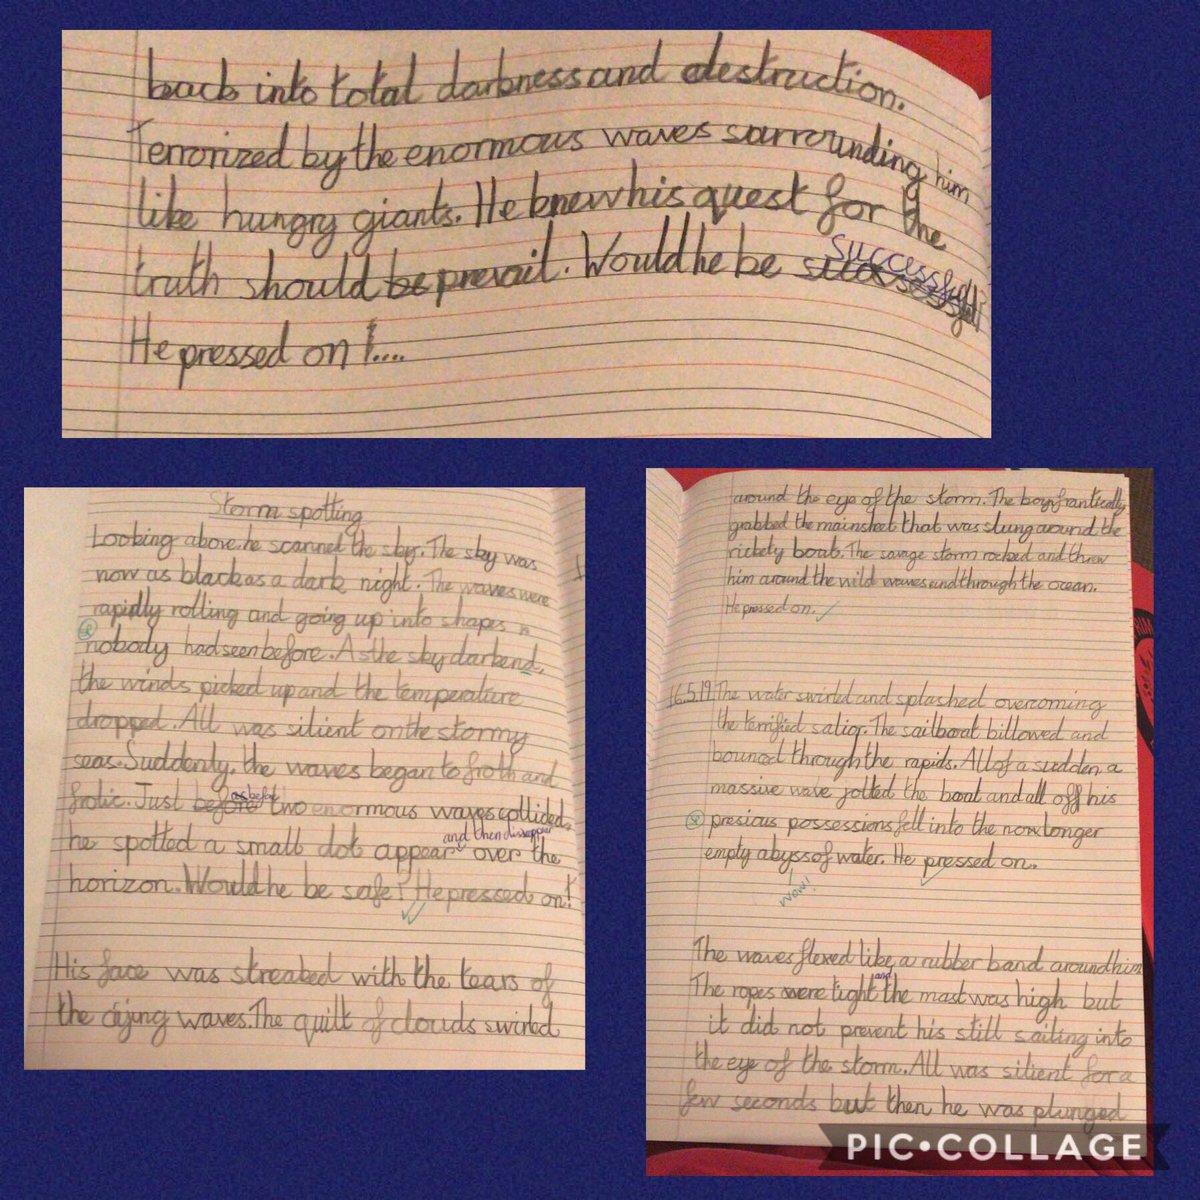 back into total darkness and destruction.
Terrorized by the enormous waves surrounding him
like hungry giants. He knew his quest for the
truth should be prevail. Would he be successful?
He pressed on !....
Storm spotting
Looking above, he scannet the sky. The sky was
now as black as a dark night. The waves were
rapidly rolling and going up into shapes
nobody had seen before. As the sky darkend,
the winds picked up and the temperature
dropped. All was silient on the stormy
seas. Suddenly, the waves began to froth and
frolic. Just before as before two enormous waves collided,
he spotted a small dot appear and then dissappear over the
horizon. Would he be safe? He pressed on!
His face was streaked with the tears of
the dying waves. The quilt of clouds swirled
around the eye of the storm. The boy frantically
grabbed the mainsheet that was slung around the
rickety boat. The savage storm rocked and threw
him around the wild waves and through the ocean.
He pressed on.
16.5.19 The water swirled and splashed overcoming
the terrified salior. The sailboat billowed and
bounced through the rapids. All of a sudden a
massive wave jolted the boat and all off his
presious possessions fell into the now longer
empty abyss of water. He pressed on.
Wow!
The waves flexed like a rubber band around him
The ropes were tight and the mast was high but
it did not prevent his still sailing into
the eye of the storm. All was silient for a
few seconds but then he was plunged
PIC•COLLAGE